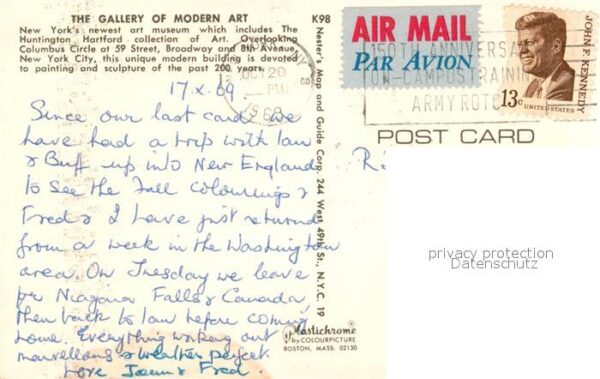 THE GALLERY OF MODERN ART K98
New York's newest art museum which includes The
Huntington Hartford collection of Art. Overlooking
Columbus Circle at 59 Street, Broadway and 8th Avenue,
New York City, this unique modern building is devoted
to painting and sculpture of the past 200 years.
17.X.69
Since our last card we
have had a trip with Ian
& Buff up into New England
to see the Fall Colourings &
Fred & I have just returned
from a week in the Washington
area. On Tuesday we leave
for Niagara Falls & Canada
then back to Ian before coming
home. Everything working out
marvellous & weather perfect
Love Joan & Fred.
Nester's Map and Guide Corp. 244 West 49th St., N.Y.C. 19
Plastichrome
by COLOURPICTURE
BOSTON, MASS. 02130
AIR MAIL
PAR AVION
JOHN F. KENNEDY
13c UNITED STATES
OCT 20
PM
1969
150TH ANNIVERSARY
ON-CAMPUS TRAINING
ARMY ROTC
POST CARD
privacy protection
Datenschutz